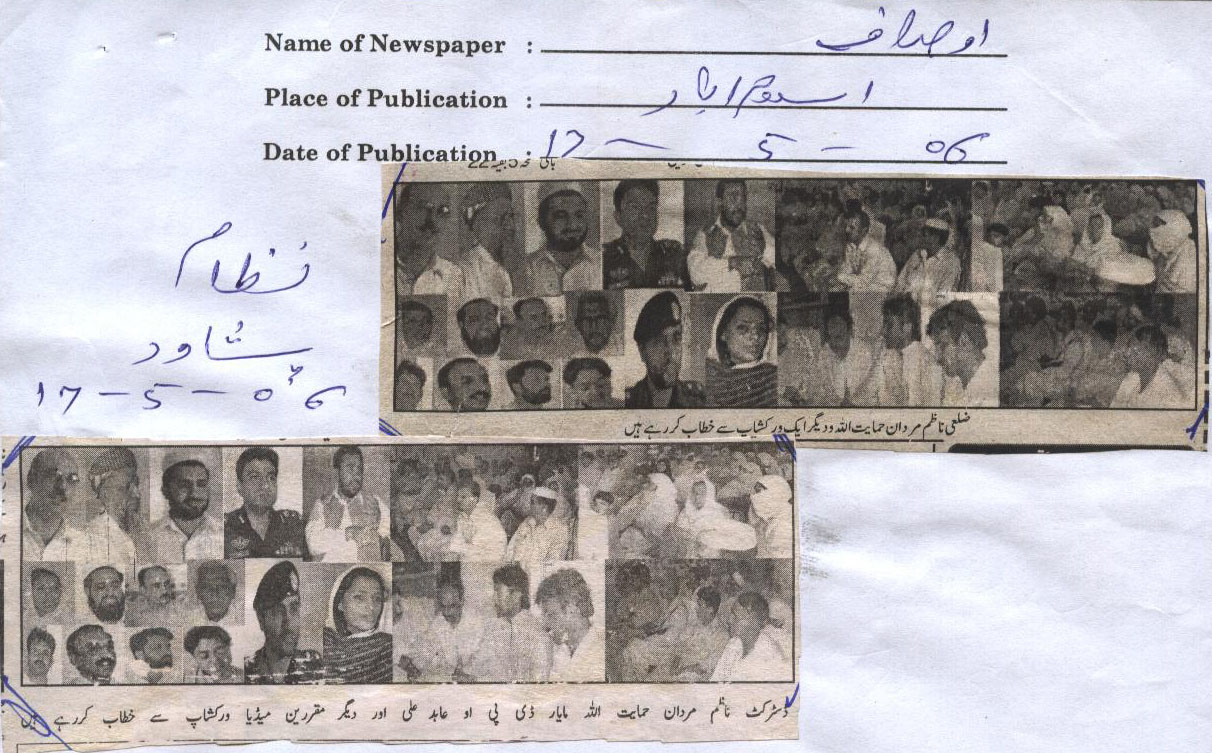 Name of Newspaper : اوصاف
Place of Publication : اسلام اباد
Date of Publication : 17 – 5 – 06
باقی صفحہ 5 بقیہ 22
نظام
پشاور
17 – 5 – 06
ضلعی ناظم مردان حمایت اللہ و دیگر ایک ورکشاپ سے خطاب کر رہے ہیں
ڈسٹرکٹ ناظم مردان حمایت اللہ مایار ڈی پی او عابد علی اور دیگر مقررین میڈیا ورکشاپ سے خطاب کررہے ہیں